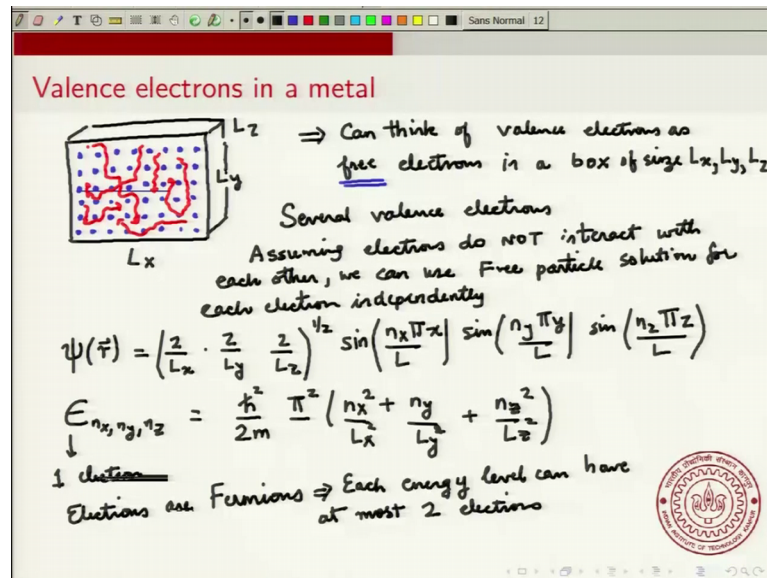 Sans Normal 12
Valence electrons in a metal
Lz
Ly
Lx
⇒ Can think of valence electrons as
free electrons in a box of size Lx, Ly, Lz
Several valence electrons
Assuming electrons do NOT interact with
each other, we can use Free particle solution for
each election independently
ψ(r⃗) = (2/Lx · 2/Ly 2/Lz)^1/2 sin(nxπx/L) sin(nyπy/L) sin(nzπz/L)
E nx,ny,nz = ħ²/2m π² (nx²/Lx² + ny/Ly² + nz²/Lz²)
↓
Elections are Fermions ⇒ Each energy level can have
at most 2 elections
INDIAN INSTITUTE OF TECHNOLOGY KANPUR